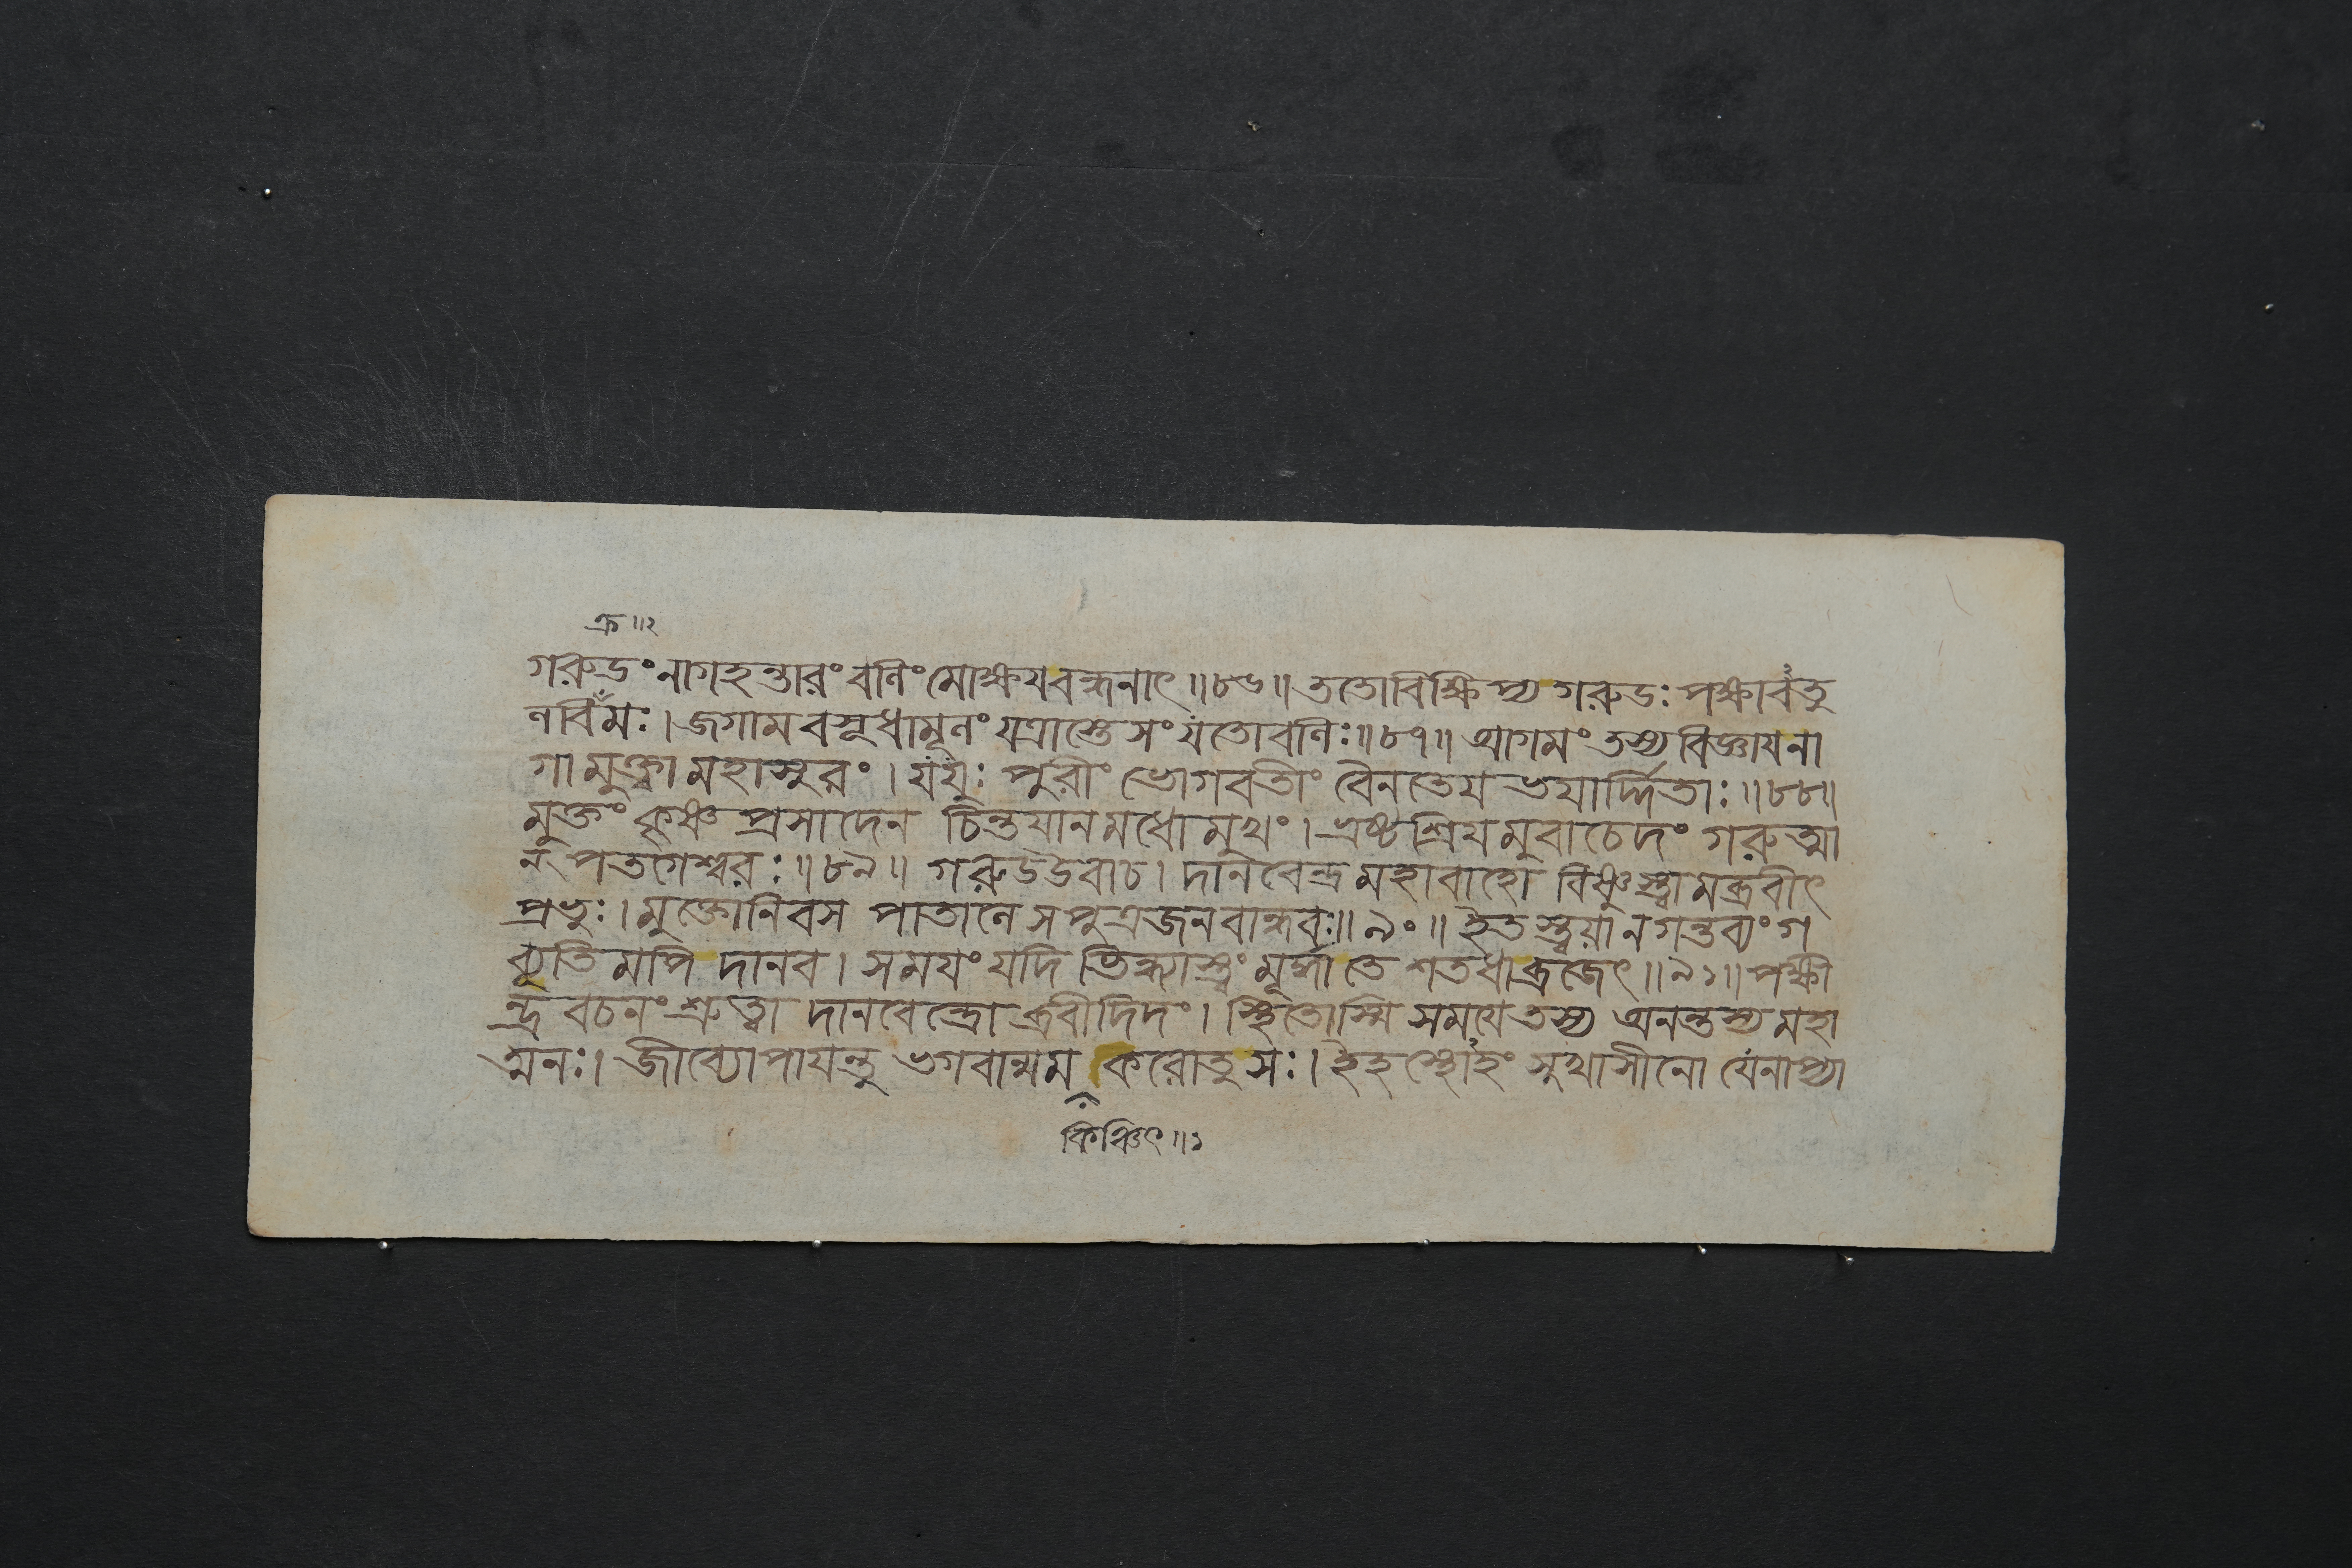 ক্র॥২
গরুডং নাগহন্তারং বলিং মোক্ষয বন্ধনাৎ॥৮৬॥ ততো বিক্ষিপ্য গরুডঃ পক্ষাবতু
লবিমঃ। জগাম বসুধামূলং যত্রাস্তে সংযতো বলিঃ॥৮৭॥ আগমং তস্য বিজ্ঞায না
গা মুক্ত্বা মহাসুরং। যযুঃ পুরীং ভোগবতীং বৈনতেয ভযার্দ্দিতাঃ॥৮৮॥
মুক্তং কৃষ্ণ প্রসাদেন চিন্তযানমধোমুখং। ভ্রষ্টশ্রিযমুবাচেদং গরুত্মা
ন্ পতগেশ্বরঃ॥৮৯॥ গরুডউবাচ। দানবেন্দ্র মহাবাহো বিষ্ণুস্ত্বামব্রবীৎ
প্রভুঃ। মুক্তো নিবস পাতালে সপুত্রজনবান্ধবঃ॥৯০॥ ইতস্ত্বযা ন গন্তব্যং গ
ব্যূতিমপি দানব। সমযং যদি ভিন্ধ্যাস্ত্বং মূর্দ্ধা তে শতধা ব্রজেৎ॥৯১॥ পক্ষী
ন্দ্র বচনং শ্রুত্বা দানবেন্দ্রোব্রবীদিদং। স্থিতোস্মি সমযে তস্য অনন্তস্য মহা
ত্মনঃ। জীব্যোপাযন্তু ভগবান্মম করোতু সঃ। ইহস্থোহং সুখাসীনো যেনাপ্যা
কিঞ্চিৎ॥১